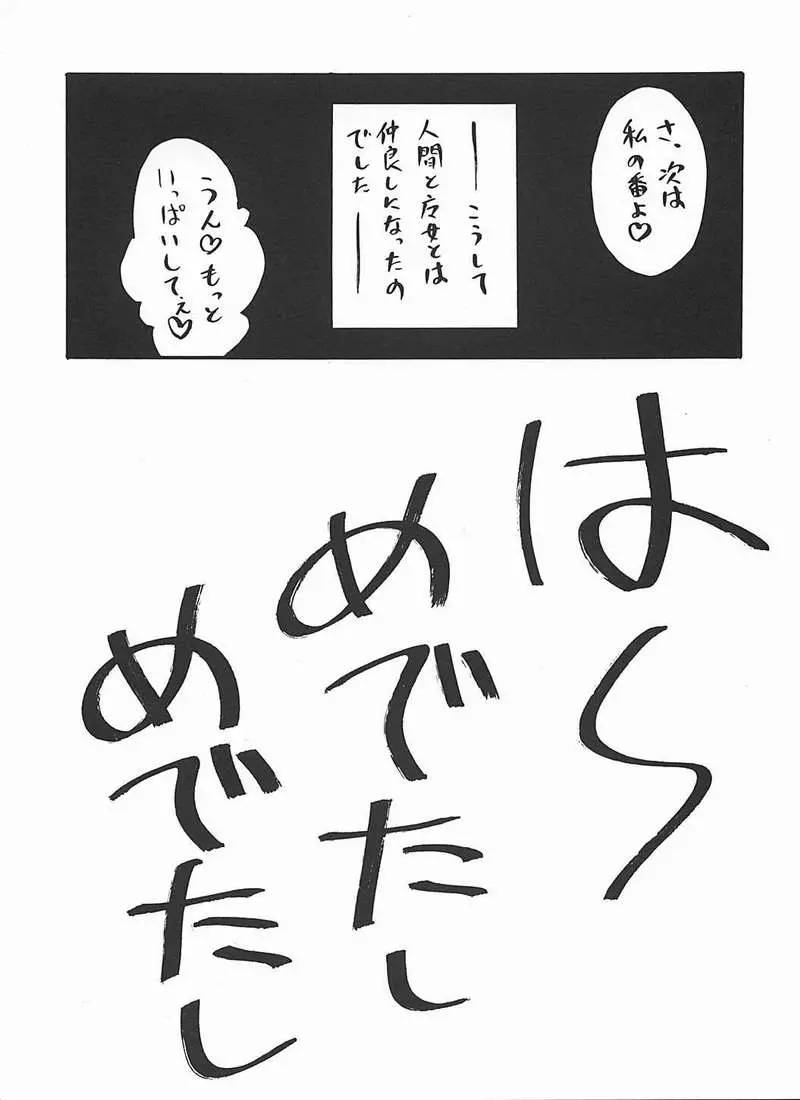 さ、次は
私の番よ♡
――こうして
人間と
女とは
仲良しになったの
でした――
うん♡もっと
いっぱいしてぇ♡
は〜
めでたし
めでたし